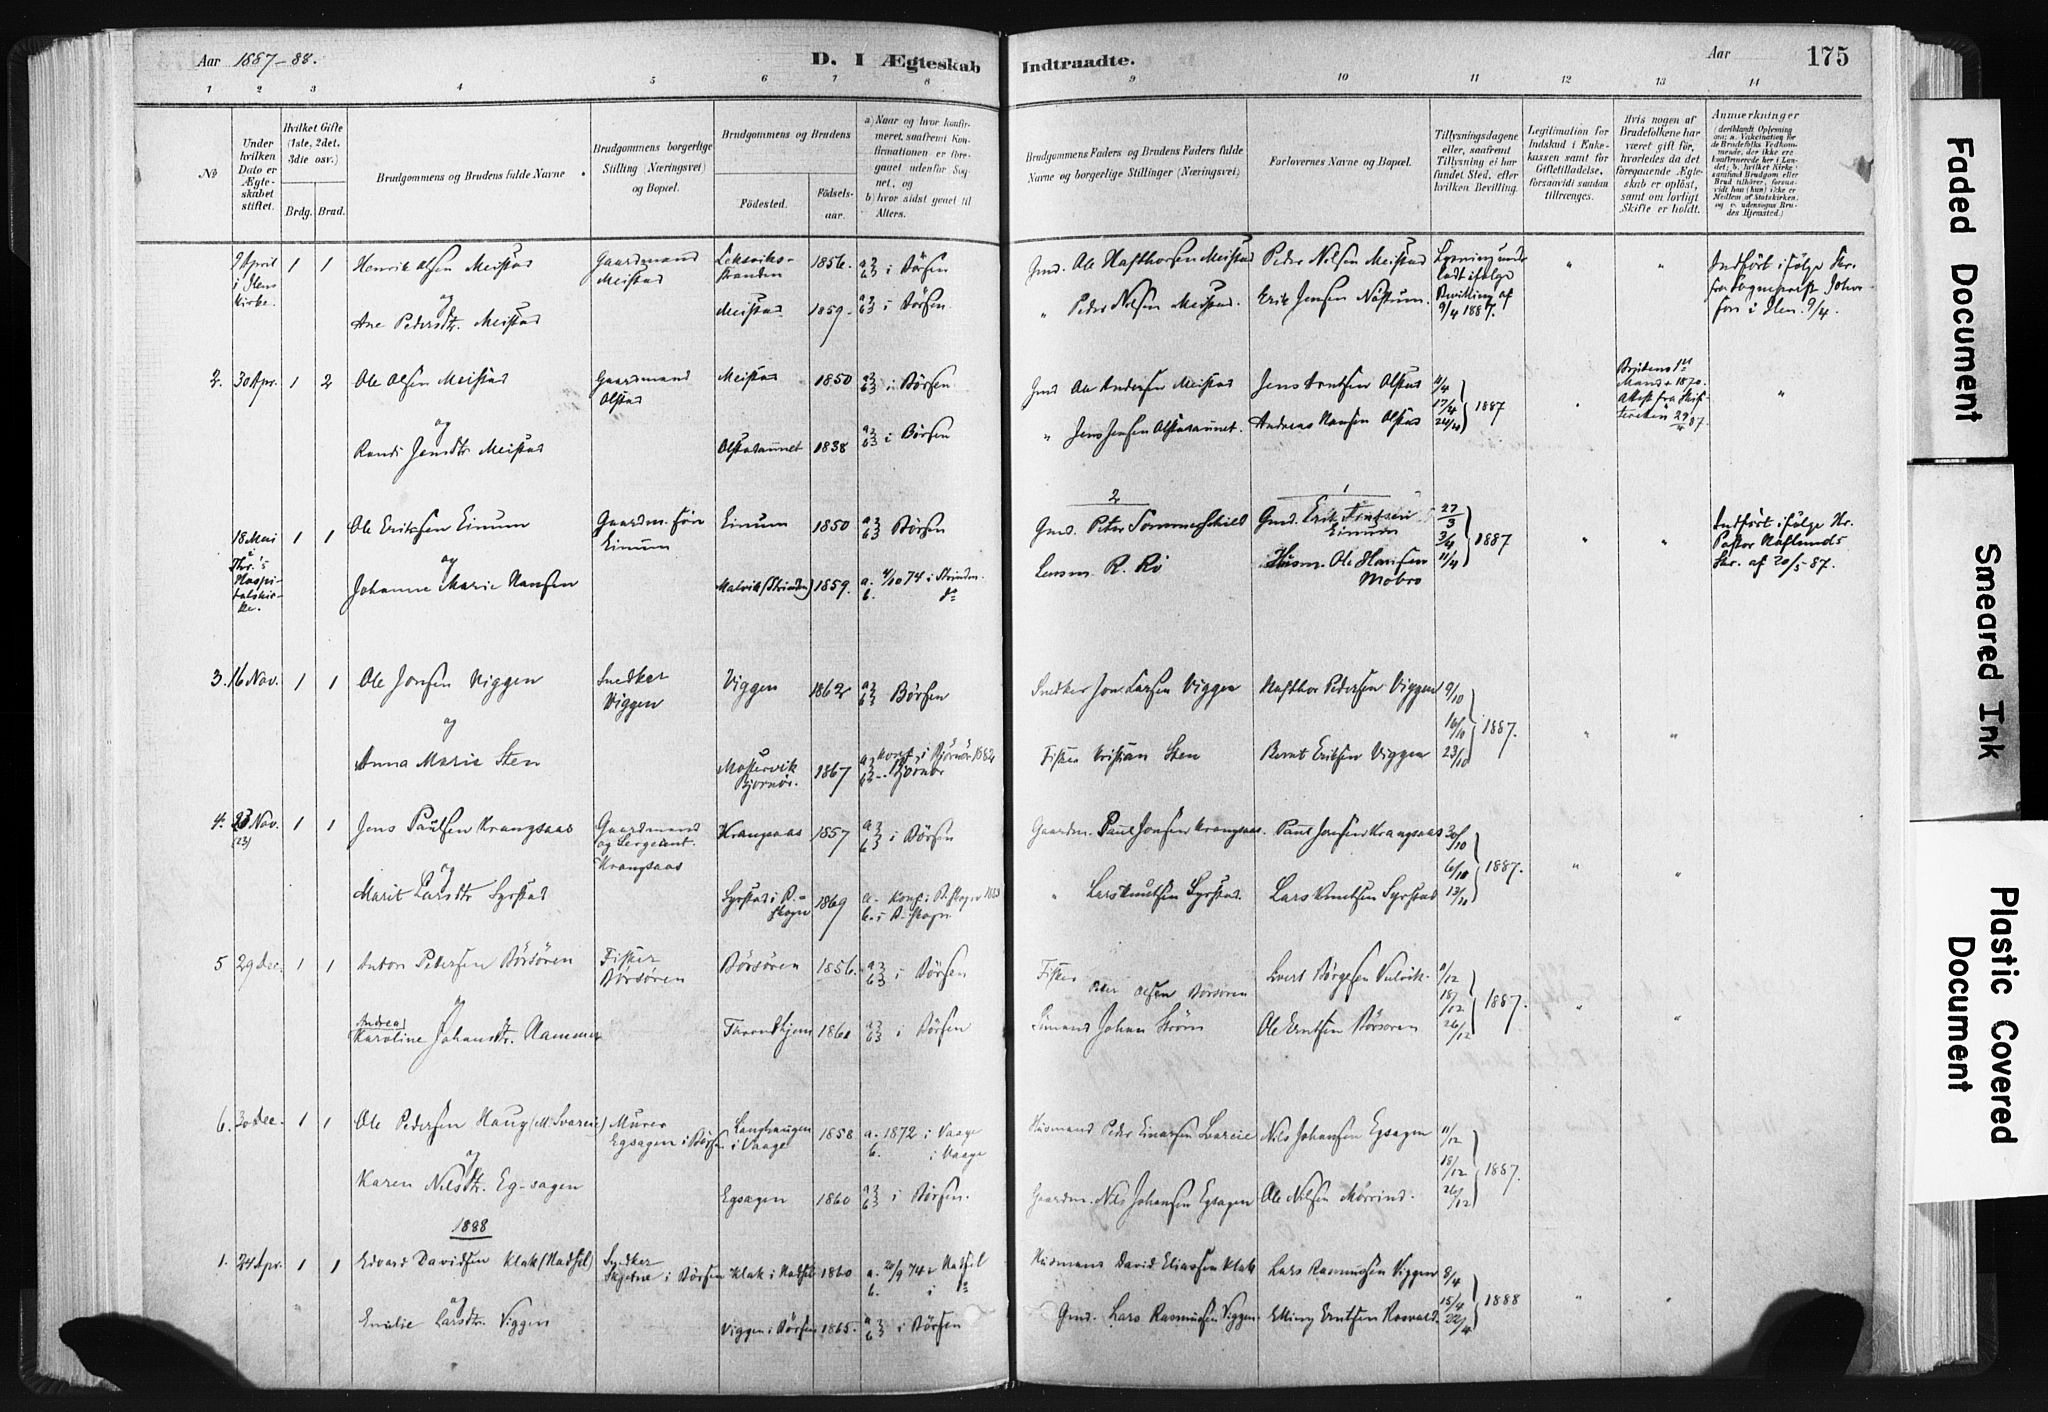 Aar 1887-88.
D. I Ægteskab Indtraadte.
Aar
175
1 2 3 4 5 6 7 8 9 10 11 12 13 14
No
Under hvilken Dato er Ægteskabet stiftet.
Hvilket Gifte (1ste, 2det. 3die osv.)
Brdg. Brud.
Brudgommens og Brudens fulde Navne
Brudgommens borgerlige Stilling (Næringsvei) og Bopæl.
Brudgommens og Brudens
Fødested.
Fødselsaar.
a) Naar og hvor konfirmeret, saafremt Konfirmationen er foregaaet udenfor Sognet, og
b) hvor sidst gaaet til Alters.
Brudgommens Faders og Brudens Faders fulde Navne og borgerlige Stillinger (Næringsvei)
Forlovernes Navne og Bopæl.
Tillysningsdagene eller, saafremt Tillysning ei har fundet Sted, efter hvilken Bevilling.
Legitimation for Indskud i Enkekassen samt for Giftetilladelse, forsaavidt saadan tiltrænges.
Hvis nogen af Brudefolkene har været gift før, hvorledes da det foregaaende Ægteskab er opløst, samt om lovligt Skifte er holdt.
Anmærkninger
9 April i Ilens Kirke. 1 1 Henrik Olsen Meistad Gaardmand Meistad Leksvikstranden 1856. a b i Børsen Gmd. Ole Hafthorsen Meistad Peder Nilsen Meistad Lysning undladt ifølge Bevilling af 9/4 1887. " " Indført ifølge Skr. fra Sognepræst i Ilen. 9/4.
og
Ane Pedersdtr. Meistad Meistad 1859. a b i Børsen " Peder Nilsen Meistad. Erik Jensen Nøstum.
2. 30 Apr. 1 2 Ole Olsen Meistad Gaardmand Olstad Meistad 1850 a b i Børsen Gmd Ole Andersen Meistad Jens Arntsen Olstad 11/4 17/4 24/4 1887 Brudens 1ste Mand + 1870. Attest fra Skifteretten 29/4 87. "
og
Randi Jensdtr Meistad Olstadaunet 1838 a b i Børsen " Jens Jensen Olstadaunet. Andreas Hansen Olstad
18 Mai i Thr.'s Hospitalskirke. 1 1 Ole Eriksen Einum Gaardm. søn Einum Einum 1850 a b Børsen 2 Gmd. Peter Sommerschild 1 Gmd. Erik Einum 27/3 3/4 11/4 1887 " " Indført ifølge Hr. Pastor Skr. af 20/5 87.
og
Johanne Marie Hansen Malvik (Strinden) 1859. a. 4/10 74 i Strinden. b. do Lensm. R. Ro Husm. Ole Hansen Mobro
3. 16 Nov. 1 1 Ole Jonsen Viggen Snedker Viggen Viggen 1862 a b Børsen Snedker Jon Larsen Viggen Hafthor Pedersen Viggen 9/10 16/10 23/10 1887. " "
og
Anna Marie Sten Bjørnør. 1867 a konf. i Bjørnør 1882 b Bjørnør Fisker Kristian Sten Bernt Eriksen Viggen
4. 23 Nov. (23) 1 1 Jens Paulsen Krangsaas Gaardmand og Sergeant. Krangsaas Krangsaas 1857 a b i Børsen Gaardm. Paul Jonsen Krangsaas. Paul Jonsen Krangsaas 30/10 6/11 13/11 1887. " "
og
Marit Larsdtr Syrstad Syrstad i B.-skogn 1869 a. konf. i B.skogn 1883 b. i B-skogn. " Lars Knutsen Syrstad. Lars Knutsen Syrstad
5 29 Dec. 1 1 Anton Petersen Børsøren Fisker Børsøren Børsøren 1856. a b i Børsen Fisker Peder Olsen Børsøren Evert Børgesen Vulvik. 11/12 18/12 26/12 1887. " "
og
Andrea Karoline Johansdtr. Hammer Trondhjem a b i Børsen Johan Strøm Ole Erntsen Børsøren
6. 30 Dec. 1 1 Ole Pedersen Haug Murer Egsagen i Børsen Langhaugen i Vaage 1858 a. 1872 i Vaage b. i Vaage Husmand Peder Einarsen Nils Johansen Egsagen 11/12 18/12 26/12 1887.
og
Karen Nilsdtr. Eg-sagen Egsagen 1860 a b i Børsen. Gaardm. Nils Johansen Egsagen Ole Nilsen
1888
1. 24 Apr. 1 1 Edvard Davidsen Klak (Hadsel) Snedker i Børsen Klak i Hadsel 1860 a. 20/9 74 i Hadsel b. i do Husmand David Eliassen Klak Lars Rasmussen Viggen 8/4 15/4 22/4 1888 " "
og
Emilie Larsdtr. Viggen Viggen i Børsen 1865. a b i Børsen Gmd. Lars Rasmussen Viggen Elling Erntsen
Faded Document
Smeared Ink
Plastic Covered Document